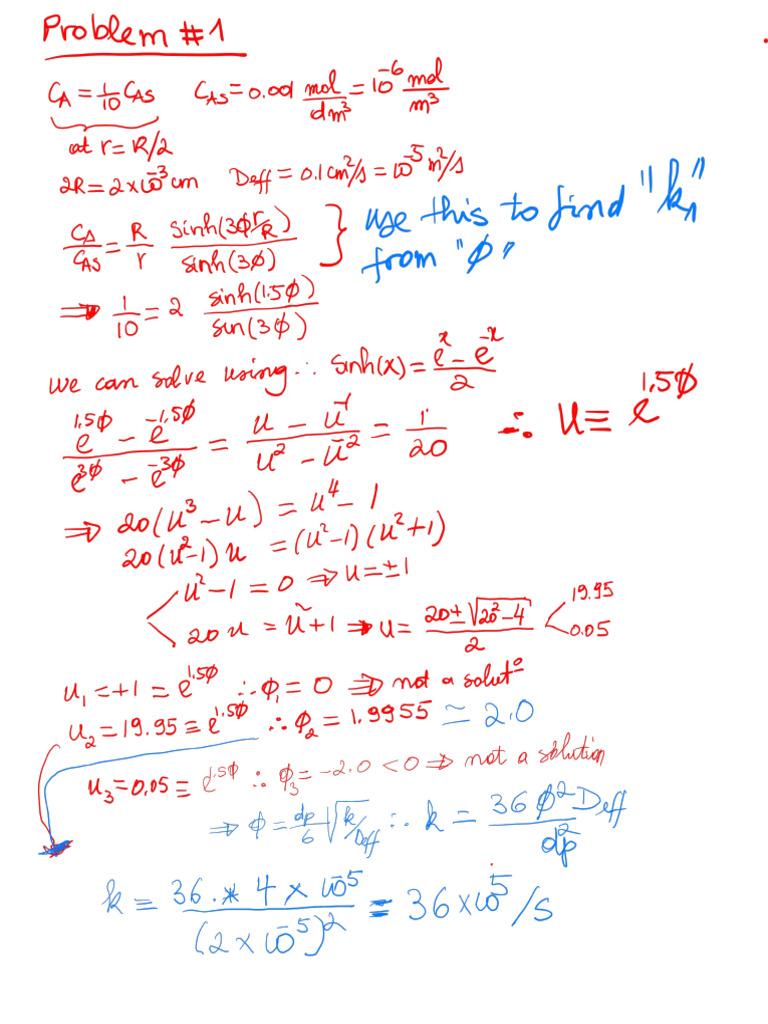 Problem #1
C_A = 1/10 C_AS   C_AS = 0.001 mol/dm³ = 10⁻⁶ mol/m³
at r = R/2
2R = 2×10⁻³ cm   Deff = 0.1 cm²/s = 10⁻⁵ m²/s
C_A/C_AS = R/r sinh(3φ r/R)/sinh(3φ) } use this to find "k₁" from "φ"
⇒ 1/10 = 2 sinh(1.5φ)/sin(3φ)
we can solve using ∴ sinh(x) = (eˣ − e⁻ˣ)/2
(e^1.5φ − e^−1.5φ)/(e^3φ − e^−3φ) = (u − u⁻¹)/(u² − u⁻²) = 1/20 ∴ u ≡ e^1.5φ
⇒ 20(u³ − u) = u⁴ − 1
20(u² − 1) u = (u² − 1)(u² + 1)
u² − 1 = 0 ⇒ u = ±1
20 u = u² + 1 ⇒ u = (20 ± √(20² − 4))/2 < 19.95 0.05
u₁ = +1 = e^1.5φ ∴ φ₁ = 0 ⇒ not a solutº
u₂ = 19.95 = e^1.5φ ∴ φ₂ = 1.9955 ≃ 2.0
u₃ = 0.05 = e^1.5φ ∴ φ₃ = −2.0 < 0 ⇒ not a solution
⇒ φ = dp/6 √(k/Deff) ∴ k = 36 φ² Deff/dp²
k = 36 * 4 × 10⁻⁵/(2 × 10⁻⁵)² = 36 × 10⁵ /s